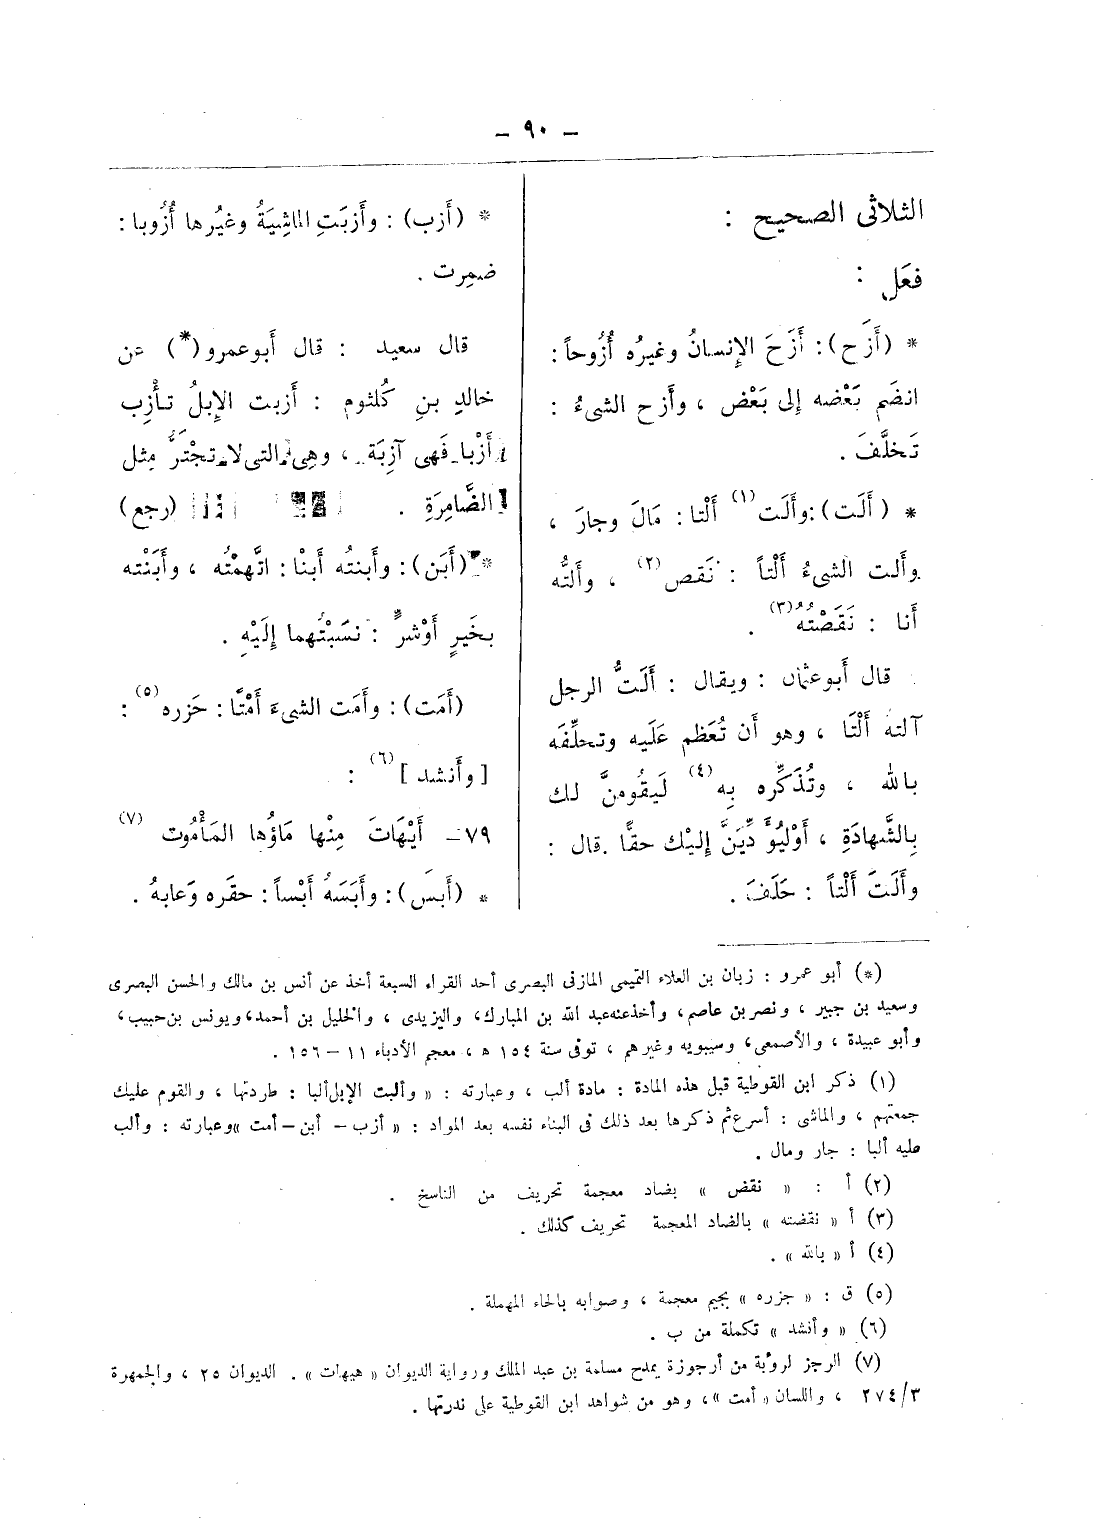 – ٩٠ –
الثلاثى الصحيح :
فعَل :
* (أَزَح): أَزَحَ الإنسانُ وغيرُه أُزُوحاً:
انضَم بَعْضه إلى بَعْض ، وأَزح الشىءُ :
تَخلَّفَ .
* (أَلَت):وأَلَت (١) أَلْتا: مَالَ وجارَ ،
وأَلت الشىءُ أَلْتاً : نَقص (٢) ، وأَلتُّه
أنا : نَقَصْتُه (٣) .
قال أَبو عثمان : ويقال : أَلَتُّ الرجل
آلته أَلْتَا ، وهو أَن تُعَظم عَلَيه وتحلِّفَه
بالله ، وتُذَكِّره بِه (٤) لَيقُومنَّ لك
بِالشَّهادَةِ ، أَوْليُؤَدِّيَنَّ إليْك حقًّا . قال :
وأَلَتَ أَلْتاً : حَلَفَ .
* (أَزب) : وأَزبَتِ الماشِيَةُ وغيُرها أُزُوبا :
ضمِرت .
قال سعيد : قال أَبوعمرو(*) عن
خالدٍ بنِ كُلثوم : أَزبت الإِبلُ تـأْزِب
أَزْبا فَهى آزِبَة ، وهِى التى لا تجْتَرُّ مِثل
الضَّامِرَةِ . (رجع)
* (أَبَن): وأَبنتُه أَبنْا: اتَّهمْتُه ، وأَبَنْته
بخَيرٍ أَوْشرٍّ : نَسَبْتُهما إِلَيْهِ .
(أَمَت): وأَمَت الشىءَ أَمْتًا: حَزره (٥) :
[ وأَنشد ] (٦) :
٧٩– أَيْهَاتَ مِنْها مَاؤُها المَأْمُوت (٧)
* (أَبسَ): وأَبَسَهُ أَبْساً: حقَره وَعابهُ .
(*) أبو عمرو : زبان بن العلاء التميمى المازنى البصرى أحد القراء السبعة أخذ عن أنس بن مالك والحسن البصرى
وسعيد بن جبير ، ونصر بن عاصم، وأخذعنه عبد الله بن المبارك، واليزيدى ، والخليل بن أحمد، ويونس بن حبيب،
وأبو عبيدة ، والأصمعى، وسيبويه وغيرهم ، توفى سنة ١٥٤ ه ، معجم الأدباء ١١ – ١٥٦ .
(١) ذكر ابن القوطية قبل هذه المادة : مادة ألب ، وعبارته : « وألبت الإبل ألبا : طردتها ، والقوم عليك
جمعتهم ، والماشى : أسرع ثم ذكرها بعد ذلك فى البناء نفسه بعد المواد : « أزب – أبن – أمت »وعبارته : وألب
عليه ألبا : جار ومال .
(٢) أ : « نقض » بضاد معجمة تحريف من الناسخ .
(٣) أ « نقضته » بالضاد المعجمة تحريف كذلك .
(٤) أ « بالله » .
(٥) ق : « جزره » بجيم معجمة ، وصوابه بالحاء المهملة .
(٦) « وأنشد » تكملة من ب .
(٧) الرجز لرؤبة من أرجوزة يمدح مسلمة بن عبد الملك ورواية الديوان « هيهات » . الديوان ٢٥ ، والجمهرة
٢٧٤/٣ ، واللسان « أمت »، وهو من شواهد ابن القوطية على ندرتها .